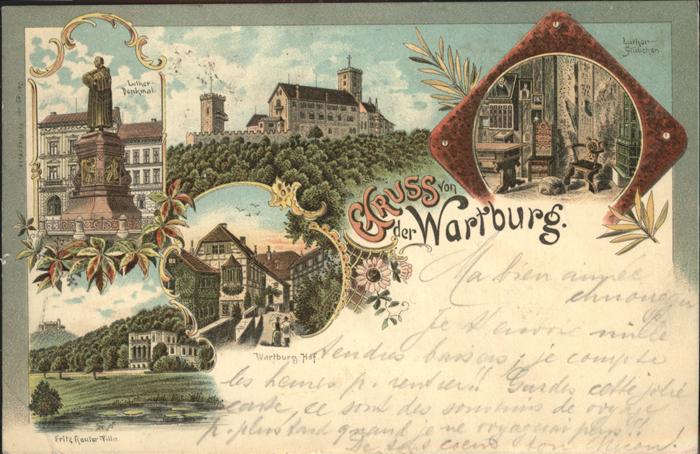 Luther-
Denkmal.
Luther-
Stübchen
GRUSS von
der Wartburg.
Wartburg Hof.
Fritz Reuter Villa
Ma bien aimée
Je t'envoie mille
tendres baisers; je compte
les heures p. rentrer!! Gardes cette jolie
carte, ce sont des souvenirs de voyage
p. plus tard quand je ne voyagerai plus!!
De tout coeur ton